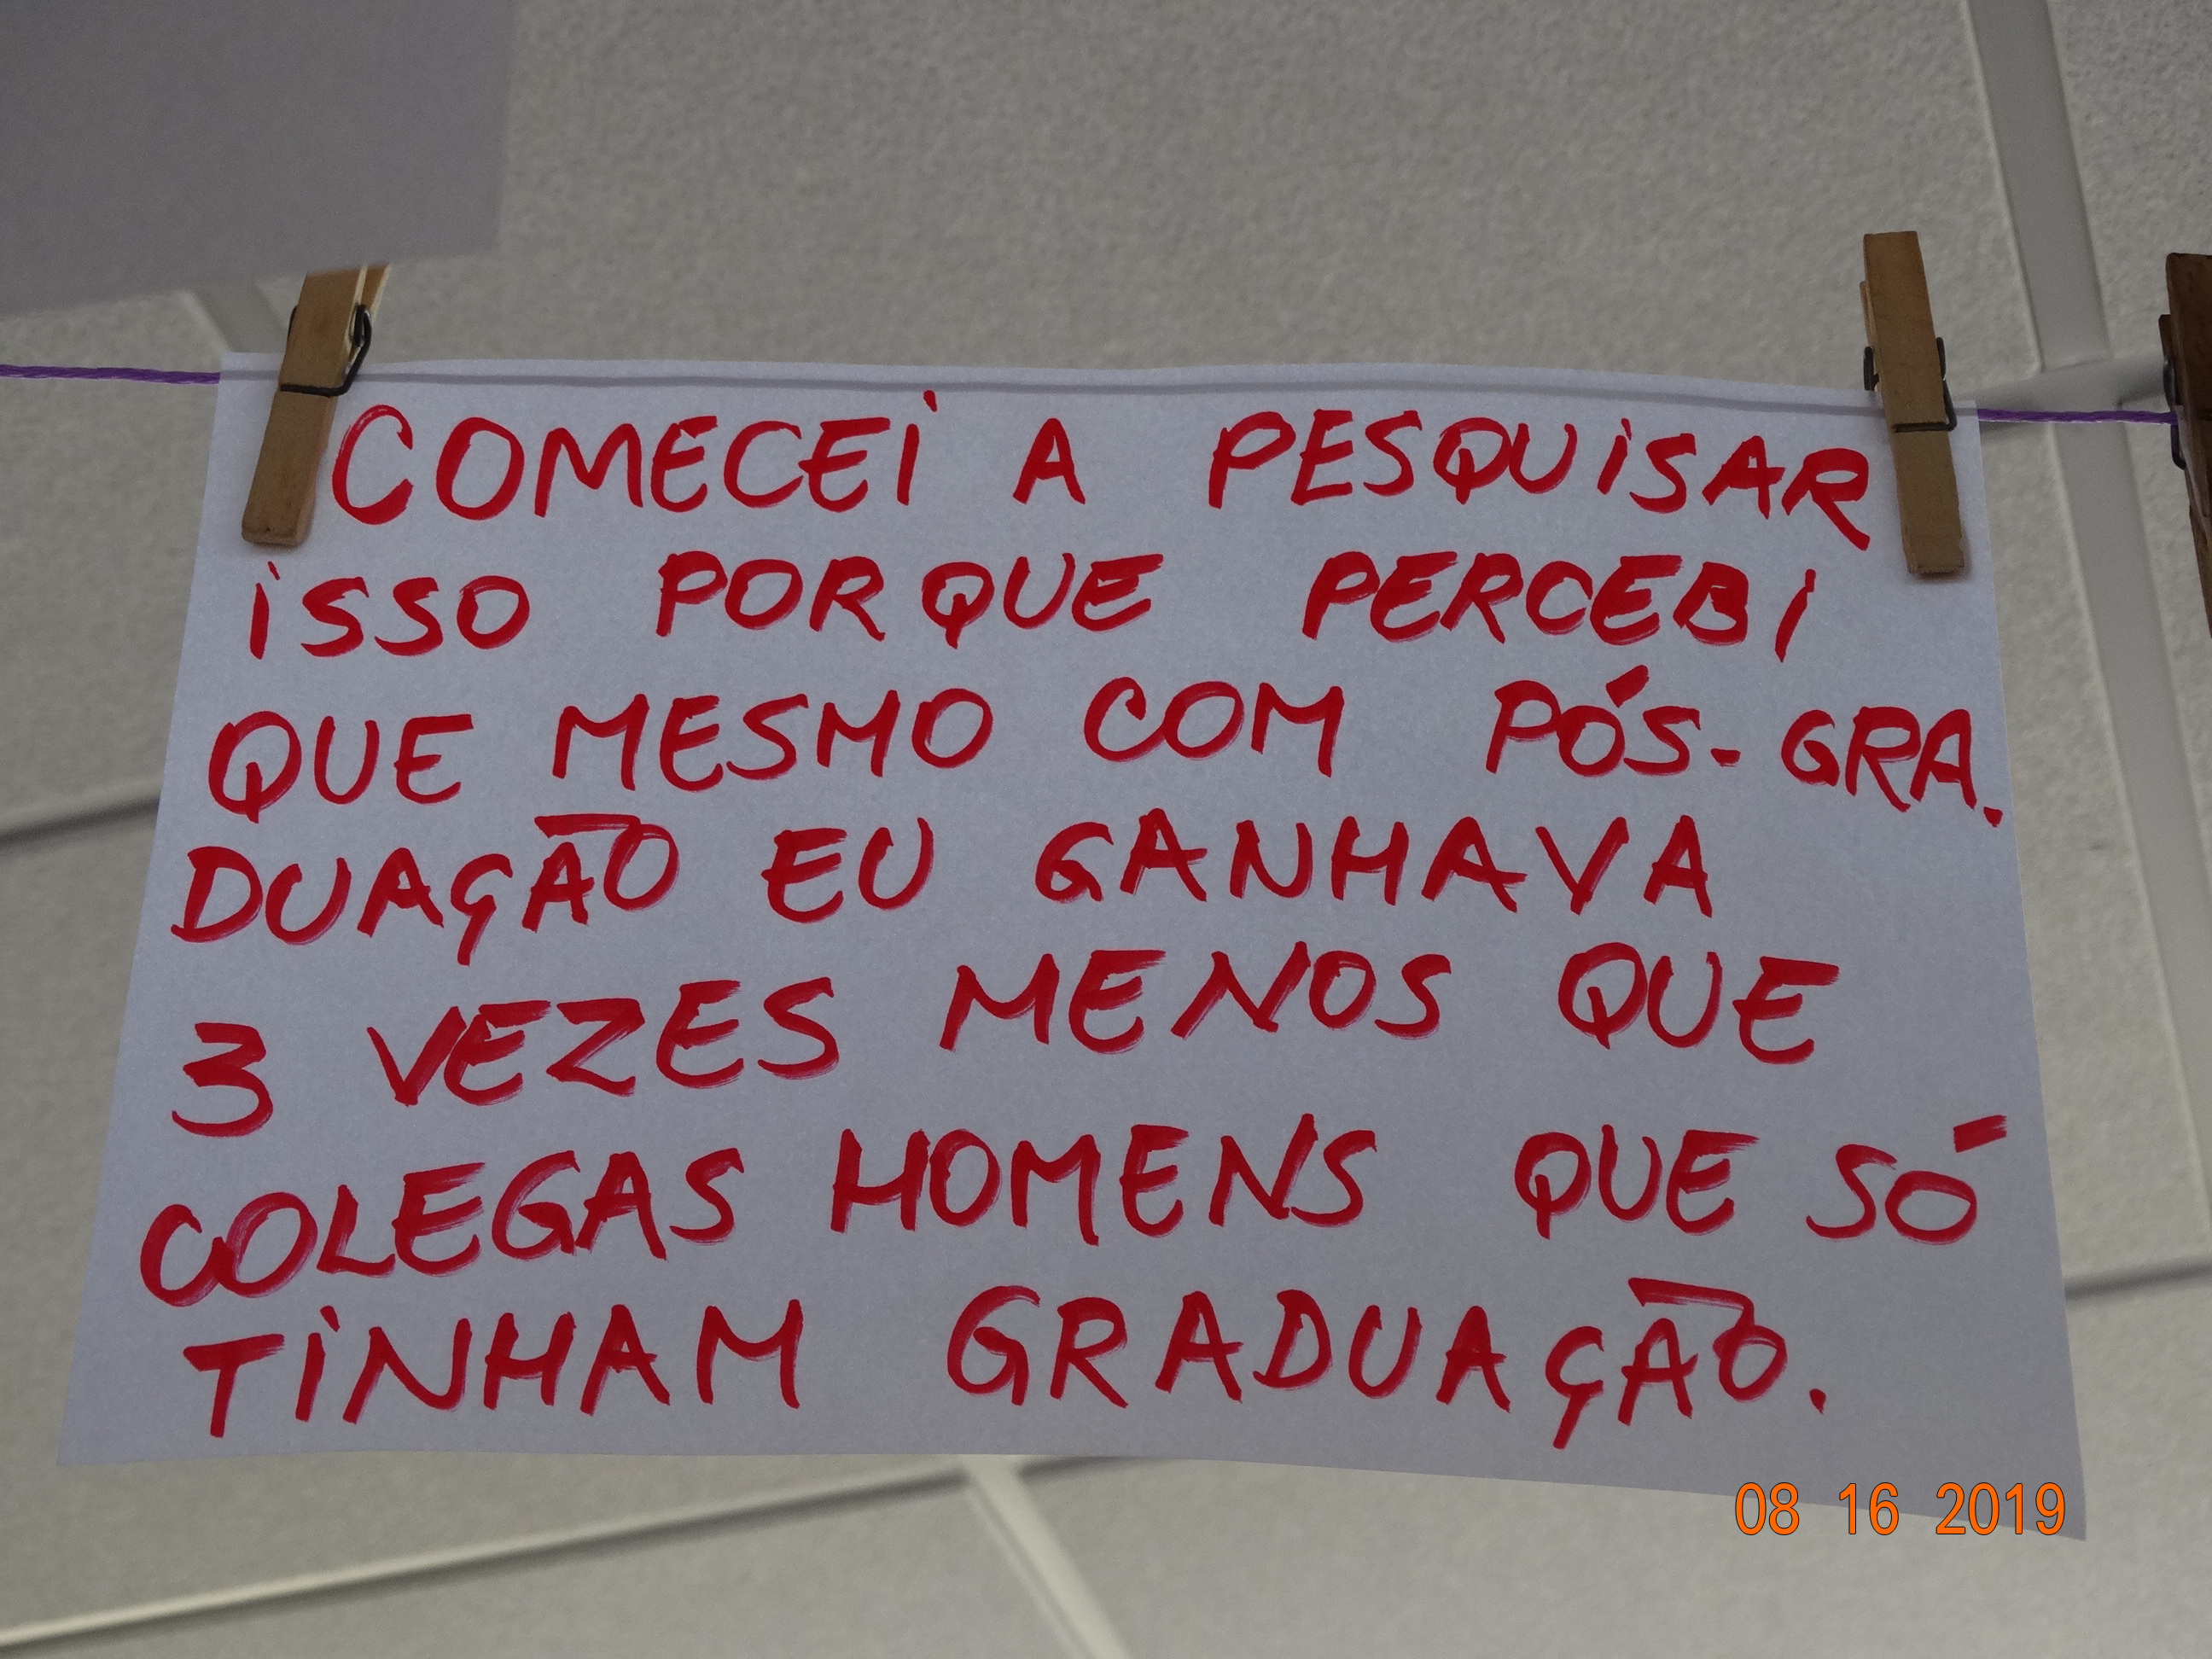 COMECEI A PESQUISAR
ISSO PORQUE PERCEBI
QUE MESMO COM PÓS-GRA.
DUAÇÃO EU GANHAVA
3 VEZES MENOS QUE
COLEGAS HOMENS QUE SÓ
TINHAM GRADUAÇÃO.
08 16 2019